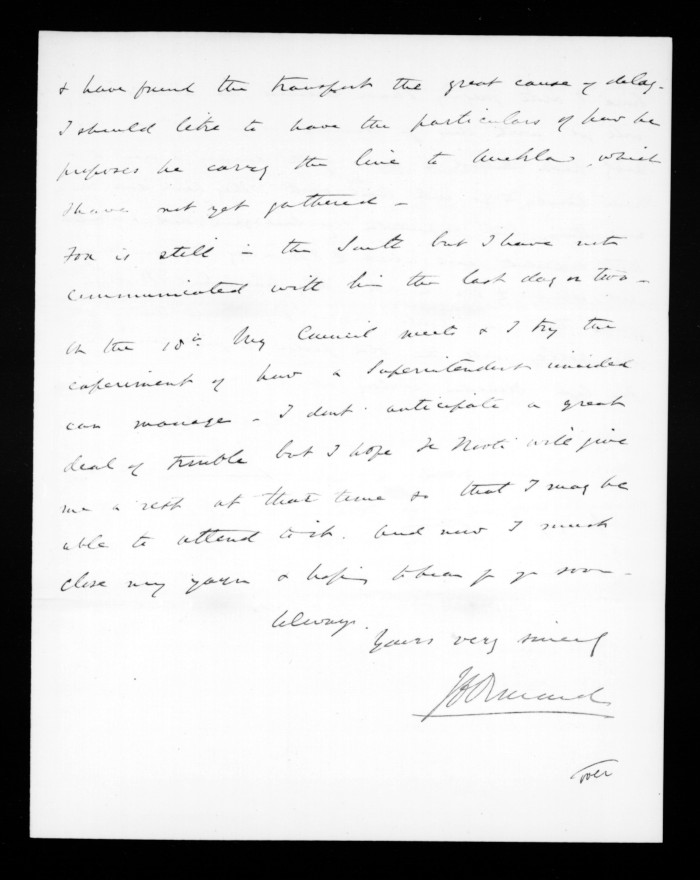 & have found the transport the great cause of delay.
I should like to have the particulars of how he
proposes he carry the line to Auckland, which
I have not yet gathered –
Fox is still in the South but I have not
communicated with him the last day or two –
On the 10th my Council meets & I try the
experiment of how a Superintendent
can manage – I dont anticipate a great
deal of trouble but I hope the North will give
me a rest at that time so that I may be
able to attend to it. And now I must
close my yarn & hoping to hear fr you soon –
Always.
Yours very sincerely
J D Ormond
over